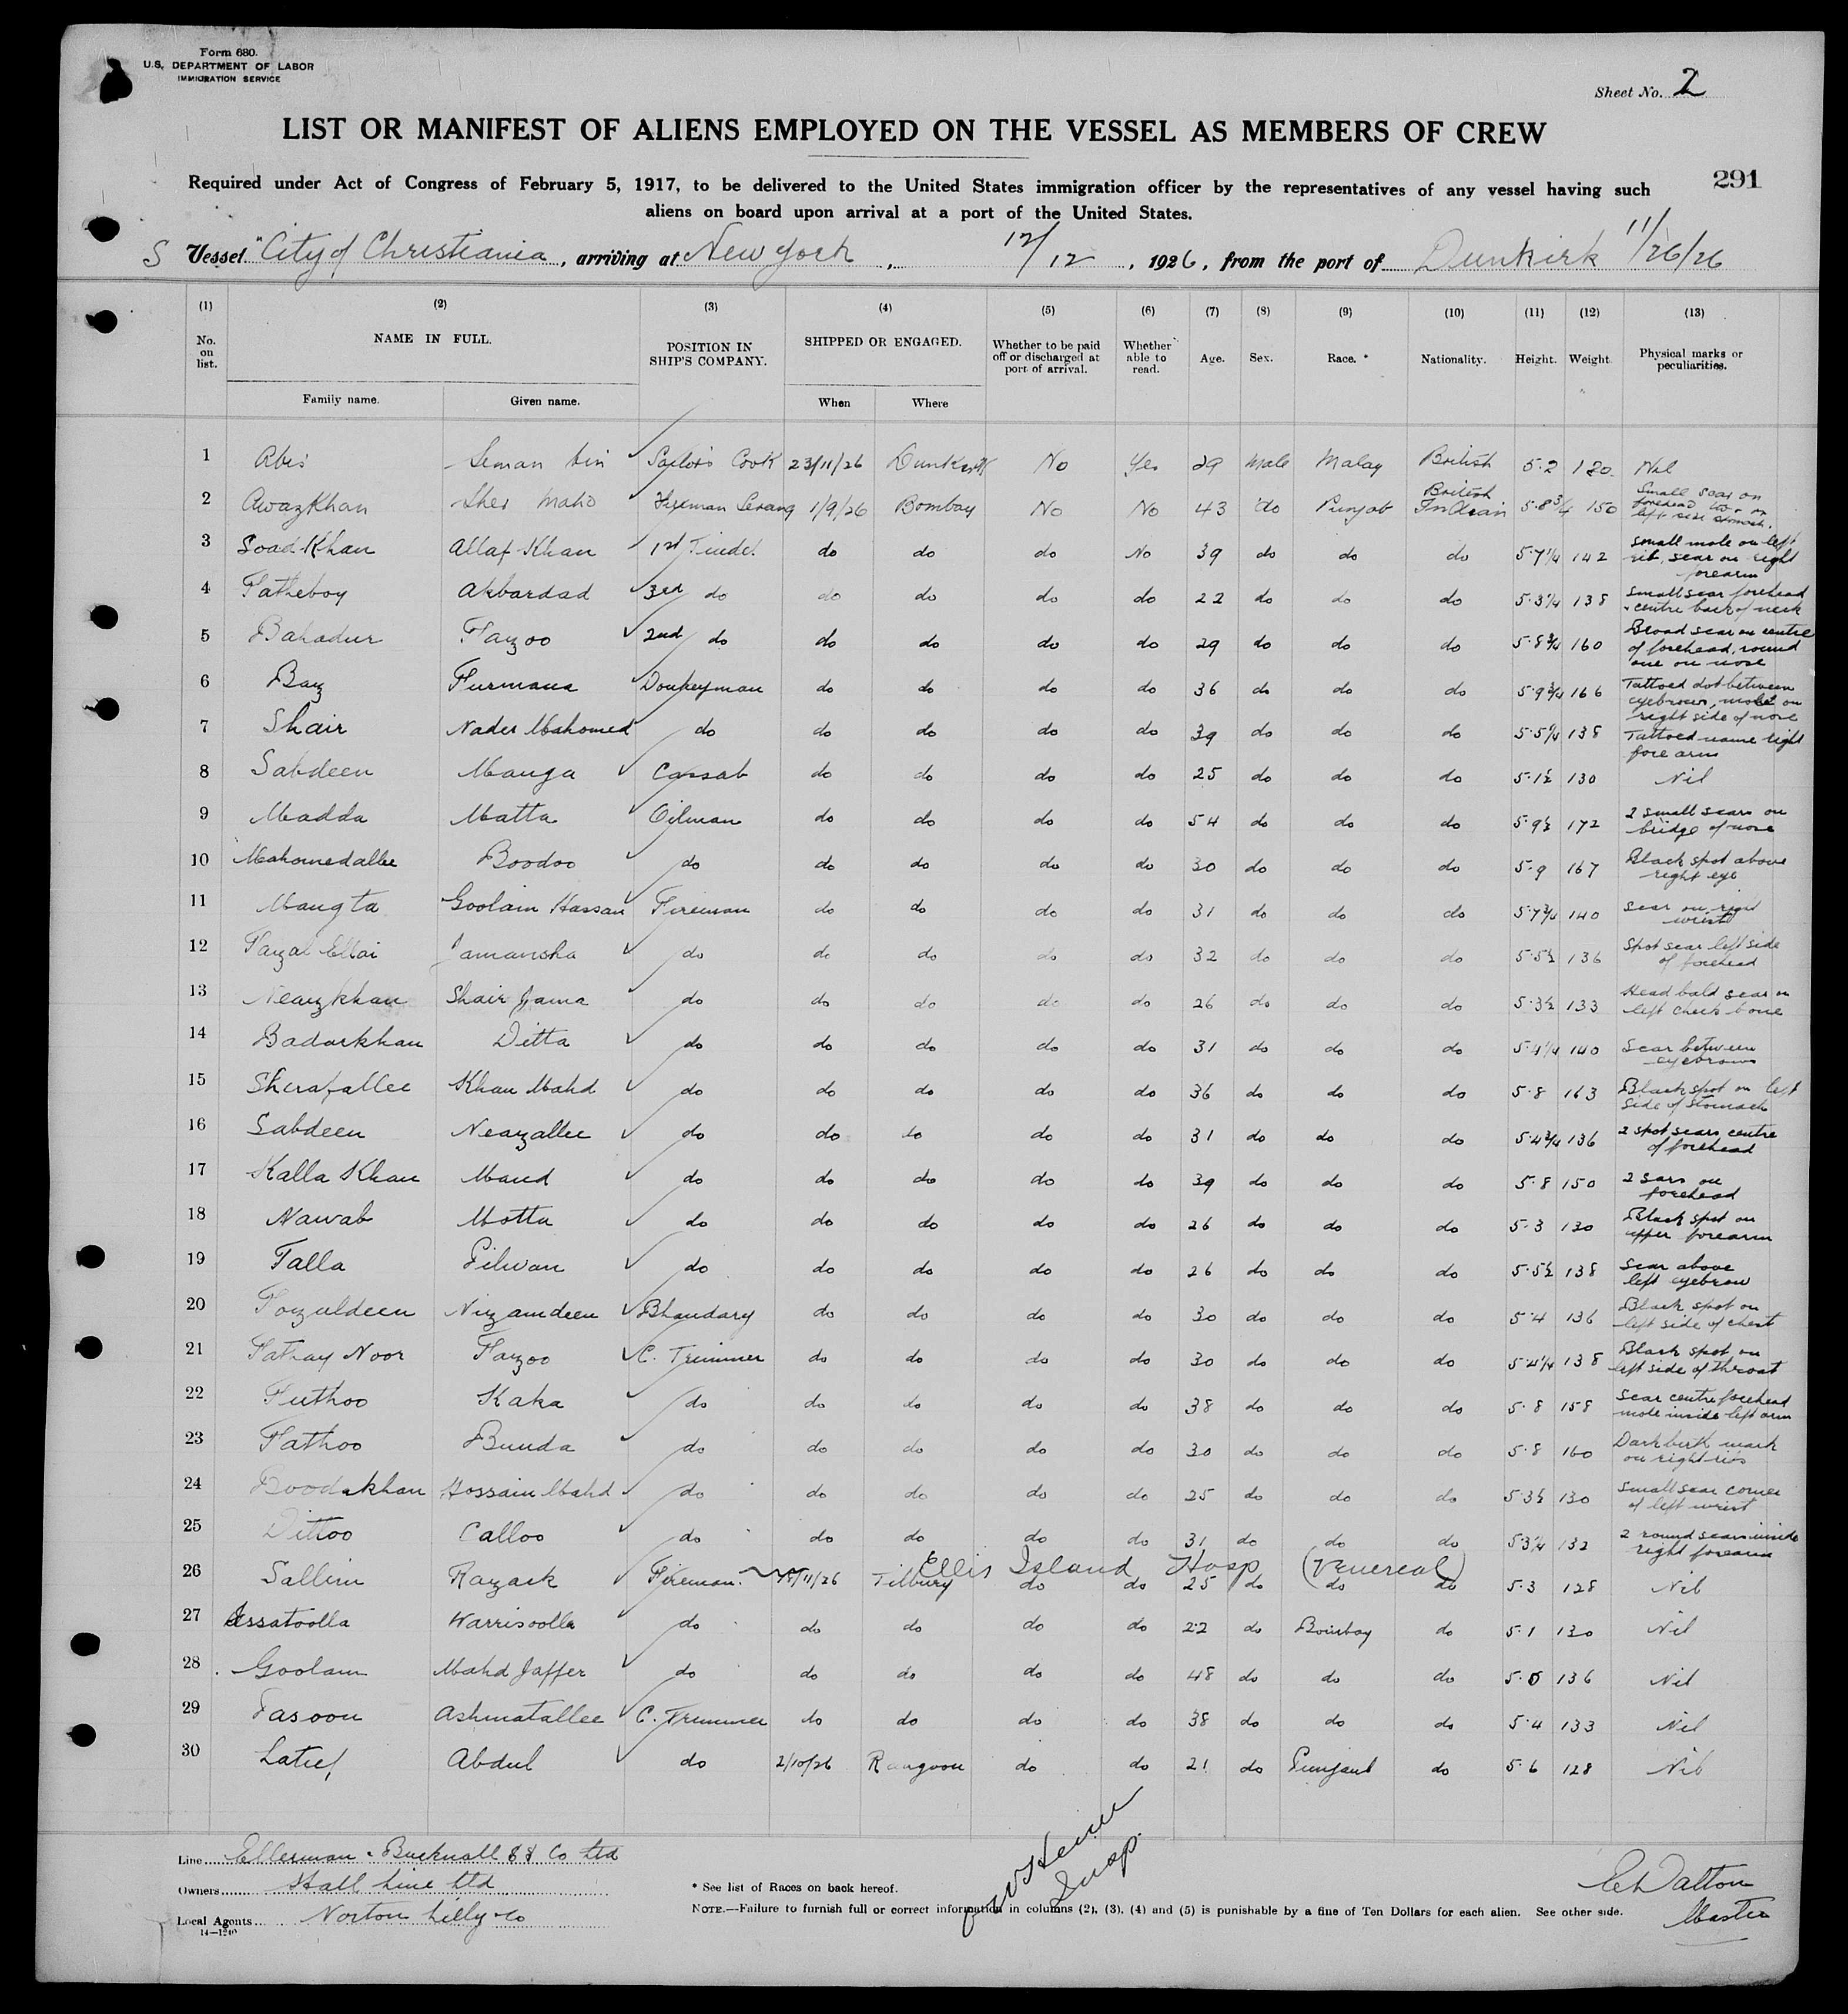 Form 680.
U.S. DEPARTMENT OF LABOR
IMMIGRATION SERVICE
Sheet No. 2
LIST OR MANIFEST OF ALIENS EMPLOYED ON THE VESSEL AS MEMBERS OF CREW
Required under Act of Congress of February 5, 1917, to be delivered to the United States immigration officer by the representatives of any vessel having such
aliens on board upon arrival at a port of the United States.
291
S Vessel "City of Christiania, arriving at New York, 12/12, 1926, from the port of Dunkirk 11/26/26
(1) (2) (3) (4) (5) (6) (7) (8) (9) (10) (11) (12) (13)
No. on list. NAME IN FULL. POSITION IN SHIP'S COMPANY. SHIPPED OR ENGAGED. Whether to be paid off or discharged at port of arrival. Whether able to read. Age. Sex. Race. * Nationality. Height. Weight. Physical marks or peculiarities.
Family name. Given name. When Where
1 Abis Seman bin Sailor's Cook 23/11/26 Dunkirk No Yes 29 Male Malay British 5.2 120 Nil
2 Awazkhan Sher Mahd Fireman Serang 1/9/26 Bombay No No 43 do Punjab British Indian 5.8 3/4 150 Small scar on forehead left side stomach.
3 Soad Khan Allaf Khan 1st Tindel do do do No 39 do do do 5.7 1/4 142 Small mole on left rib, scar on right forearm
4 Fatheboy Akbardad 3rd do do do do do 22 do do do 5.3 1/4 138 Small scar forehead + centre back of neck
5 Bahadur Fazoo 2nd do do do do do 29 do do do 5.8 3/4 160 Broad scar on centre of forehead, round one on nose
6 Baz Furmana Donkeyman do do do do 36 do do do 5.9 3/4 166 Tattoed dot between eyebrows, mole on right side of nose
7 Shair Nader Mahomed do do do do do 39 do do do 5.5 138 Tattoed name right fore arm
8 Sabdeen Manga Cassab do do do do 25 do do do 5.1 1/2 130 Nil
9 Madda Matta Oilman do do do do 54 do do do 5.9 1/2 172 2 small scars on bridge of nose
10 Mahomedallee Boodoo do do do do do 30 do do do 5.9 167 Black spot above right eye
11 Mangta Goolam Hassan Fireman do do do do 31 do do do 5.7 3/4 140 Scar on right wrist
12 Fazal Ellai Jamansha do do do do do 32 do do do 5.5 1/2 136 Spot scar left side of forehead
13 Neazkhan Shair Jama do do do do do 26 do do do 5.3 1/2 133 Head bald scar on left cheek bone
14 Badarkhan Ditta do do do do do 31 do do do 5.4 1/4 140 Scar between eyebrows
15 Sherafallee Khan Mahd do do do do do 36 do do do 5.8 163 Black spot on left side of stomach
16 Sabdeen Neazallee do do do do do 31 do do do 5.4 3/4 136 2 spot scars centre of forehead
17 Kalla Khan Mand do do do do do 39 do do do 5.8 150 2 sars on forehead
18 Nawab Motta do do do do do 26 do do do 5.3 130 Black spot on upper forearm
19 Talla Pilwan do do do do do 26 do do do 5.5 1/2 138 Scar above left eyebrow
20 Fozaldeen Nizamdeen Bhandary do do do do 30 do do do 5.4 136 Black spot on left side of chest
21 Fathay Noor Fazoo C. Trimmer do do do do 30 do do do 5.4 1/4 138 Black spot on left side of throat
22 Futhoo Kaka do do do do do 38 do do do 5.8 158 Scar centre forehead mole inside left arm
23 Fathoo Bunda do do do do do 30 do do do 5.8 160 Dark birth mark on right ribs
24 Boodakhan Hossain Mahd do do do do do 25 do do do 5.3 1/2 130 Small scar corner of left wrist
25 Dittoo Calloo do do do do do 31 do do do 5.3 1/4 132 2 round scars inside right forearm
Ellis Island Hosp (Venereal)
26 Sallim Razack Fireman 18/11/26 Tilbury do do 25 do do do 5.3 128 Nil
27 Assatoolla Warrisoolla do do do do do 22 do Bombay do 5.1 130 Nil
28 Goolam Mahd Jaffer do do do do do 48 do do do 5.5 136 Nil
29 Tasoon Ashmatallee C. Trimmer do do do do 38 do do do 5.4 133 Nil
30 Latief Abdul do 2/10/26 Rangoon do do 21 do Punjaub do 5.6 128 Nil
Line Ellerman & Bucknall SS Co Ltd
Owners Hall Line Ltd
Local Agents Norton Lilly & Co
14—1240
* See list of Races on back hereof.
NOTE.—Failure to furnish full or correct information in columns (2), (3), (4) and (5) is punishable by a fine of Ten Dollars for each alien. See other side.
Insp.
E Dalton
Master